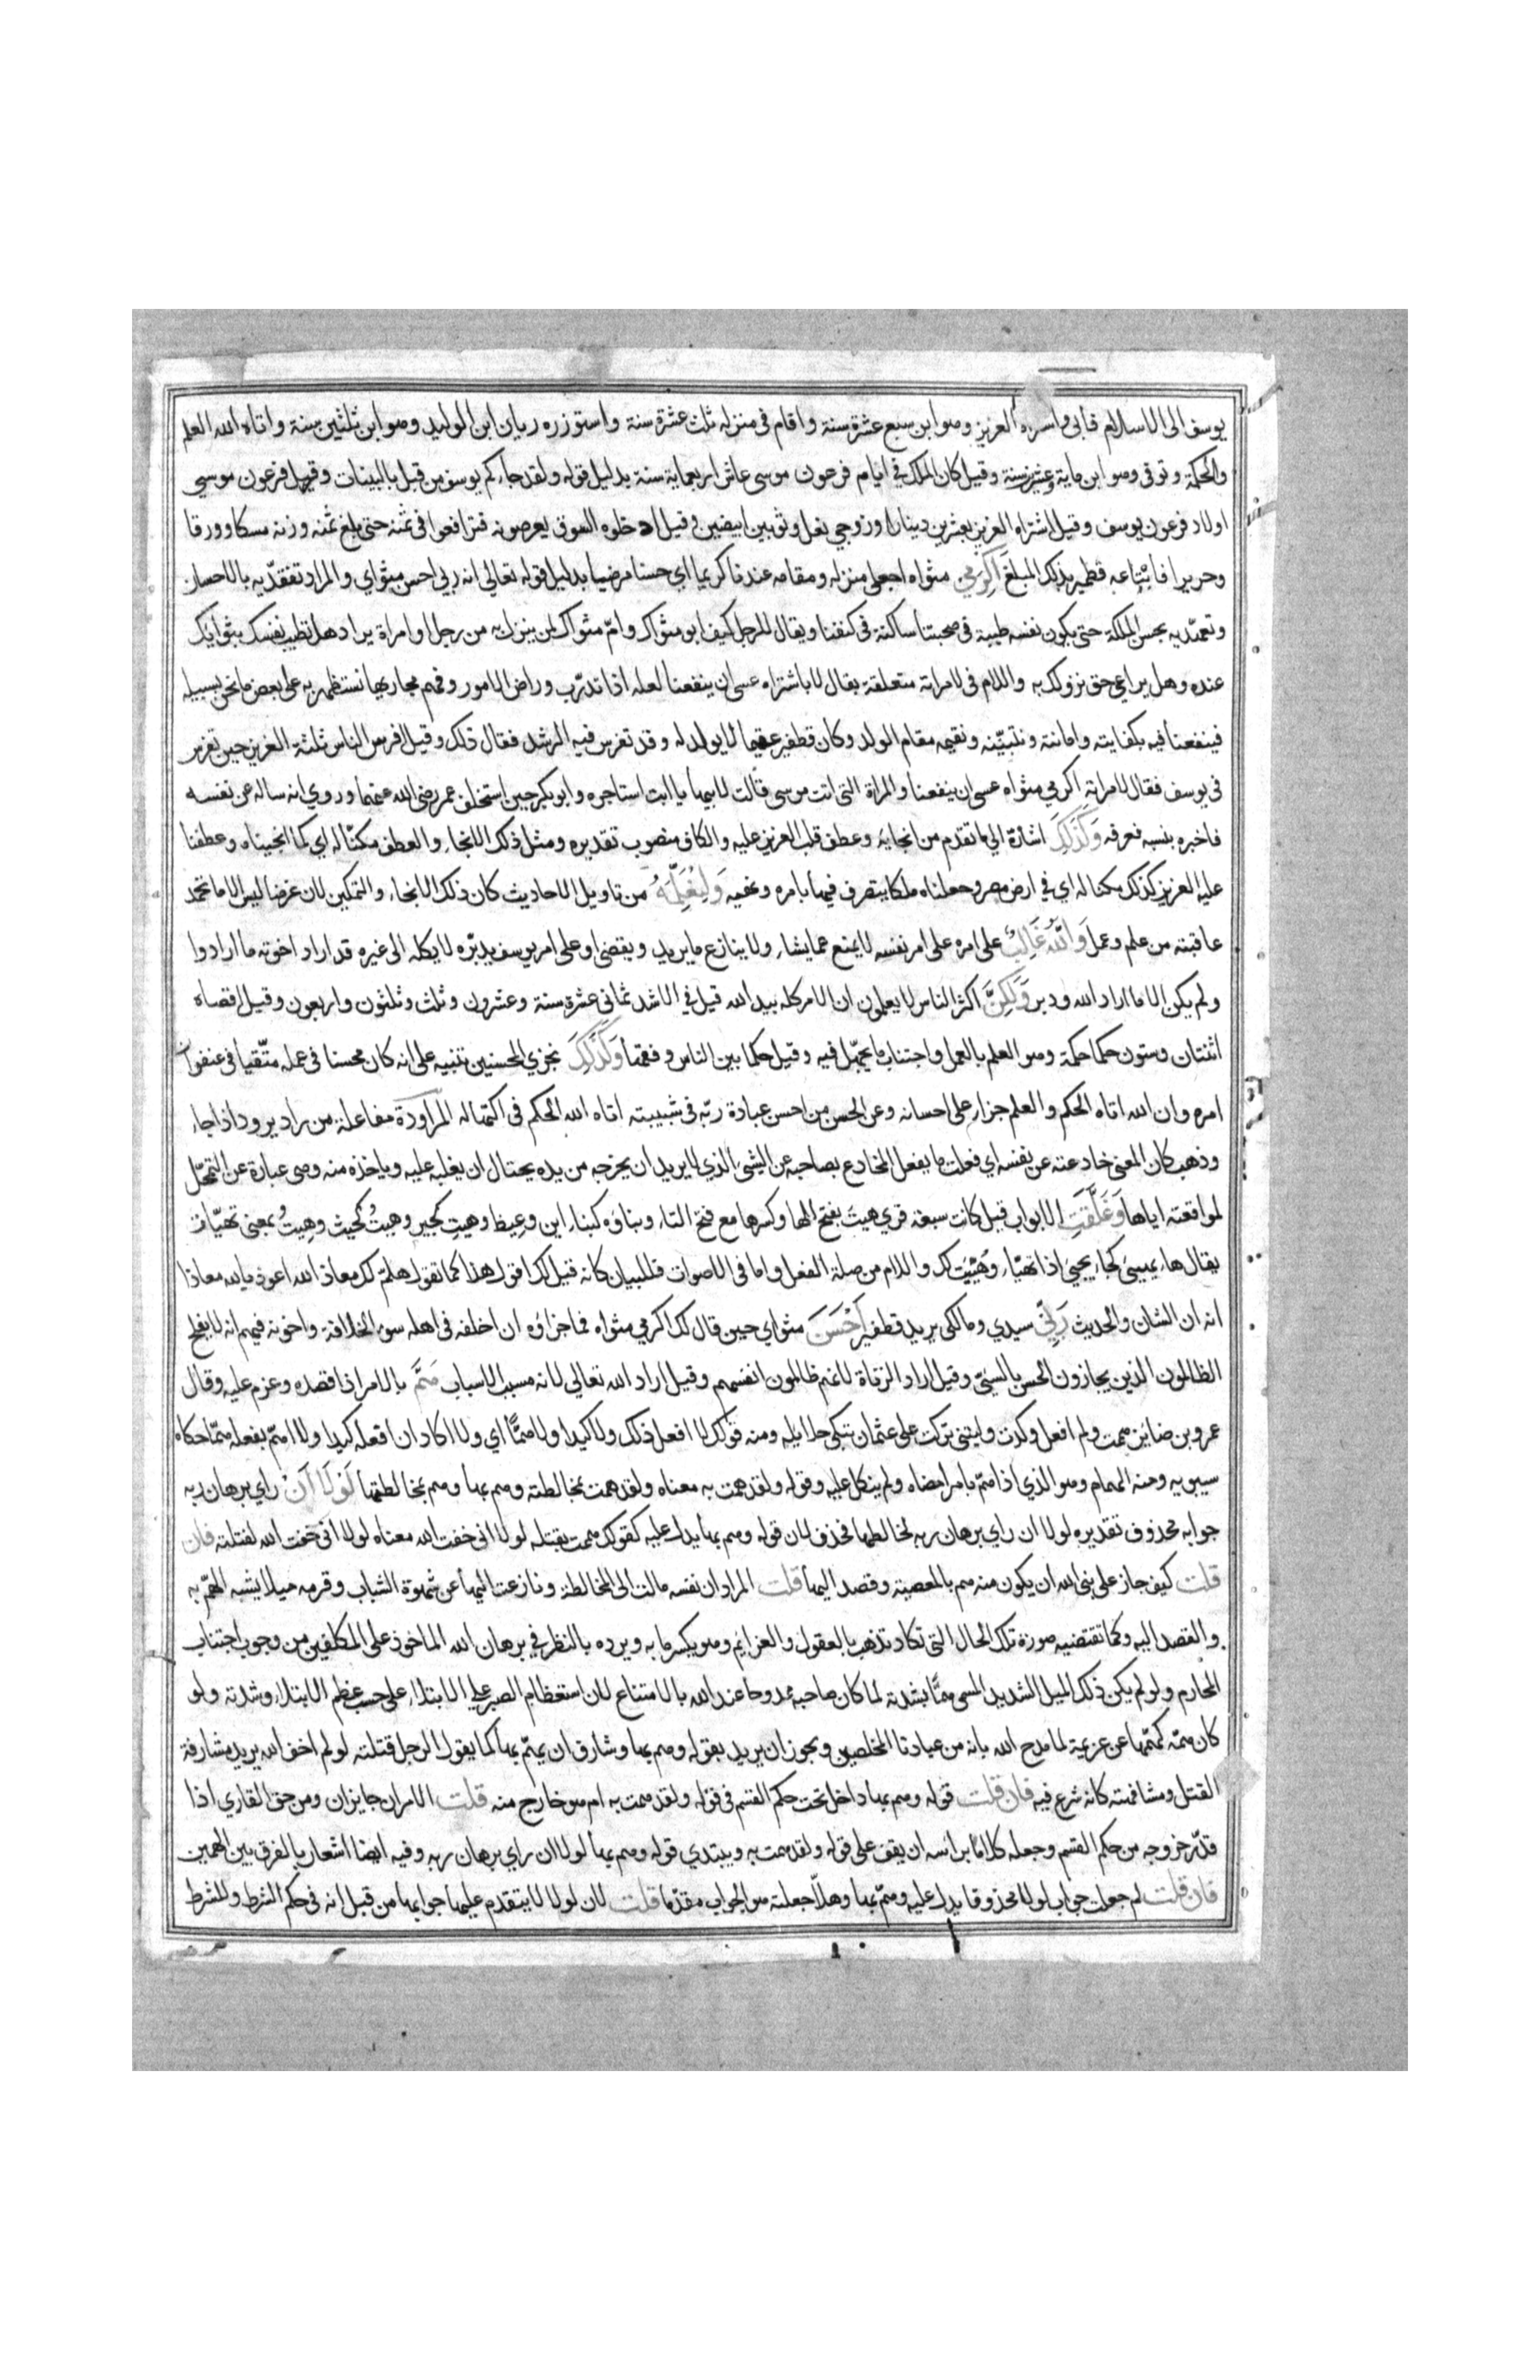 يوسف الى الاسلام فابى واشتراه العزيز وهو ابن سبع عشرة سنة واقام فى منزله ثلث عشرة سنة واستوزره ريان ابن الوليد وهو ابن ثلثين سنة واتاه الله العلم
والحكمة وتوفى وهو ابن ماية وعشرين سنة وقيل كان الملك في ايام فرعون موسى عاش اربعماية سنة بدليل قوله ولقد جاءكم يوسف من قبل بالبينات وقيل فرعون موسي
اولاد فرعون يوسف وقيل اشتراه العزيز بعشرين دينارا وزوجي نعل وثوبين ابيضين وقيل ادخلوه السوق يعرضونه فترافعوا فى ثمنه حتى بلغ ثمنه وزنه مسكا وورقا
وحريرا فابتاعه قطفير بذلك المبلغ اَكْرِمِي مثواه اجعلى منزله ومقامه عندنا كريما اي حسنا مرضيا بدليل قوله تعالي انه ربي احسن مثواي والمراد تفقديه بالاحسان
وتعهديه بحسن الملكة حتى يكون نفسه طيبة فى صحبتنا ساكنة فى كنفنا ويقال للرجل كيف ابو مثواك وامّ مثواك لمن ينزل به من رجل او امراة يراد هل تطيب نفسك بثوايك
عنده وهل يراعي حق نزولك به واللام فى لامراته متعلقة بقال لا باشتراه عسى ان ينفعنا لعله اذا تدرّب وراض الامور وفهم مجاريها نستظهر به على بعض ما نحن بسبيله
فينفعنا فيه بكفايته وامانته ونتبنّيه ونقيمه مقام الولد وكان قطفير عقيما لا يولد له وقد تفرس فيه الرشد فقال ذلك وقيل افرس الناس ثلثة العزيز حين تفرس
فى يوسف فقال لامراته اكرمي مثواه عسى ان ينفعنا والمراة التى اتت موسى قالت لابيها يا ابت استاجره وابو بكر حين استخلف عمر رضى الله عنهما وروي انه ساله عن نفسه
فاخبره بنسبه فعرفه وَكَذَلِكَ اشارة الي ما تقدم من انجايه وعطف قلب العزيز عليه والكاف منصوب تقديره ومثل ذلك الانجاء والعطف مكنّا له اي كما انجيناه وعطفنا
عليه العزيز كذلك مكنا له اي في ارض مصر وجعلناه ملكا يتصرف فيها بامره ونهيه وَلِنُعَلِّمَهُ من تاويل الاحاديث كان ذلك الانجاء والتمكين لان غرضنا ليس الا ما تحمد
عاقبته من علم وعمل وَاللّٰهُ غَالِبٌ على امره على امر نفسه لا يمنع عما يشاء ولا ينازع ما يريد ويقضى او على امر يوسف يدبّره لا يكله الى غيره قد اراد اخوته ما ارادوا
ولم يكن الا ما اراد الله ودبر وَلَكِنَّ اكثر الناس لا يعلمون ان الامر كله بيد الله قيل في الاشد ثمانى عشرة سنة وعشرون وثلث وثلثون واربعون وقيل اقصاه
اثنتان وستون حكما حكمة وهو العلم بالعمل واجتناب ما يجهّل فيه وقيل حكما بين الناس وفقها وَكَذَلِكَ نجزي المحسنين تنبيه على انه كان محسنا فى عمله متّقيا فى عنفوان
امره وان الله اتاه الحكم والعلم جزاء على احسانه وعن الحسن من احسن عبادة ربّه فى شبيبته اتاه الله الحكم فى اكتهاله المراودة مفاعلة من راد يرود اذا جاء
وذهب كان المعنى خادعته عن نفسه اي فعلت ما يفعل المخادع بصاحبه عن الشيء الذي لا يريد ان يخرجه من يده يحتال ان يغلبه عليه وياخذه منه وهى عبارة عن التمحّل
لمواقعته اياها وَغَلَّقَتِ الابواب قيل كانت سبعة قري هيتَ بفتح الها وكسرها مع فتح التاء وبناؤه كبناء اين وعيط وهيتِ كجيرِ وهيتُ كحيث وهِيتُ بمعنى تهيّات
يقال هاء يهيىء كجاء يجيء اذا تهيّاء وهُيّئت لك واللام من صلة الفعل واما فى الاصوات فللبيان كانه قيل لك اقول هذا كما تقول هلمّ لك معاذ الله اعوذ بالله معاذا
انه ان الشان والحديث رَبِّي سيدي ومالكى يريد قطفير اَحْسَنَ مثواي حين قال لك اكرمي مثواه فما جزاؤه ان اخلفه فى اهله سوء الخلافة واخونه فيهم انه لا يفلح
الظالمون الذين يجازون الحسن بالسيئ وقيل اراد الزناة لانهم ظالمون انفسهم وقيل اراد الله تعالي لانه مسبب الاسباب هَمَّ بالامر اذا قصده وعزم عليه وقال
عمرو بن ضابئ هممت ولم افعل وكدت وليتنى تركت على عثمان تبكى حلايله ومنه قولك لا افعل ذلك ولا كيدا ولا همًّا اي ولا اكاد ان افعله كيدا ولا اهمّ بفعله همّا حكاه
سيبويه ومنه الهمام وهو الذي اذا همّ بامر امضاه ولم ينكل عليه وقوله ولقد همت به معناه ولقد همت بمخالطته وهم بها وهم بمخالطتها لَوْلَا اَنْ راي برهان ربه
جوابه محذوف تقديره لولا ان راي برهان ربه لخالطها فحذف لان قوله وهم بها يدل عليه كقولك هممت بقتله لولا انى خفت الله معناه لولا انى خفت الله لقتلته فان
قلت كيف جاز على نبى الله ان يكون منه هم بالمعصية وقصد اليها قلت المراد ان نفسه مالت الى المخالطة ونازعت اليها عن شهوة الشباب وقرمه ميلا يشبه الهمّ به
والقصد اليه وكما تقتضيه صورة تلك الحال التى تكاد تذهب بالعقول والعزايم وهو يكسر ما به ويرده بالنظر في برهان الله الماخوذ على المكلفين من وجوب اجتناب
المحارم ولو لم يكن ذلك الميل الشديد المسمى همًّا بشدته لما كان صاحبه ممدوحا عند الله بالامتناع لان استعظام الصبر على الابتلاء على حسب عظم الابتلاء وشدته ولو
كان همّه كهمّها عن عزيمة لما مدح الله بانه من عبادنا المخلصين ويجوز ان يريد بقوله وهم بها وشارف ان يهمّ بها كما يقول الرجل قتلته لو لم اخف الله يريد مشارفة
القتل ومشافهته كانه شرع فيه فان قلت قوله وهم بها داخل تحت حكم القسم فى قوله ولقد همت به ام هو خارج منه قلت الامران جايزان ومن حق القاري اذا
قدّر خروجه من حكم القسم وجعله كلامًا براسه ان يقف على قوله ولقد همت به ويبتدي قوله وهم بها لولا ان راي برهان ربه وفيه ايضا اشعار بالفرق بين الهمين
فان قلت لم جعلت جواب لولا محذوفا يدل عليه وهمّ بها وهلّا جعلته هو الجواب مقدّما قلت لان لولا لا يتقدم عليها جوابها من قبل انه فى حكم الشرط وللشرط